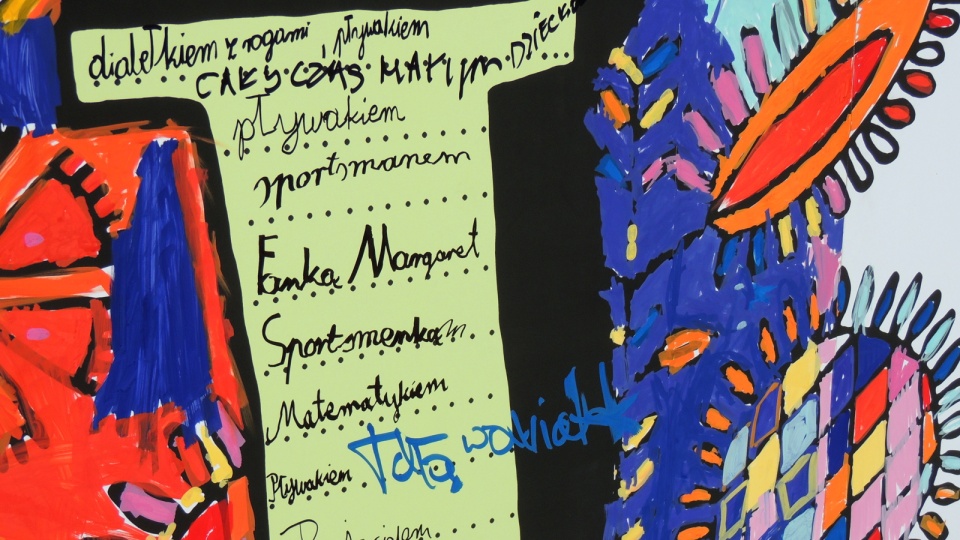 diabełkiem z rogami i pływakiem
CAŁY CZAS MAŁYM DZIECKIEM
pływakiem
sportsmanem
Fanką Margaret
Sportsmenką
Matematykiem
Tatą
Pływakiem